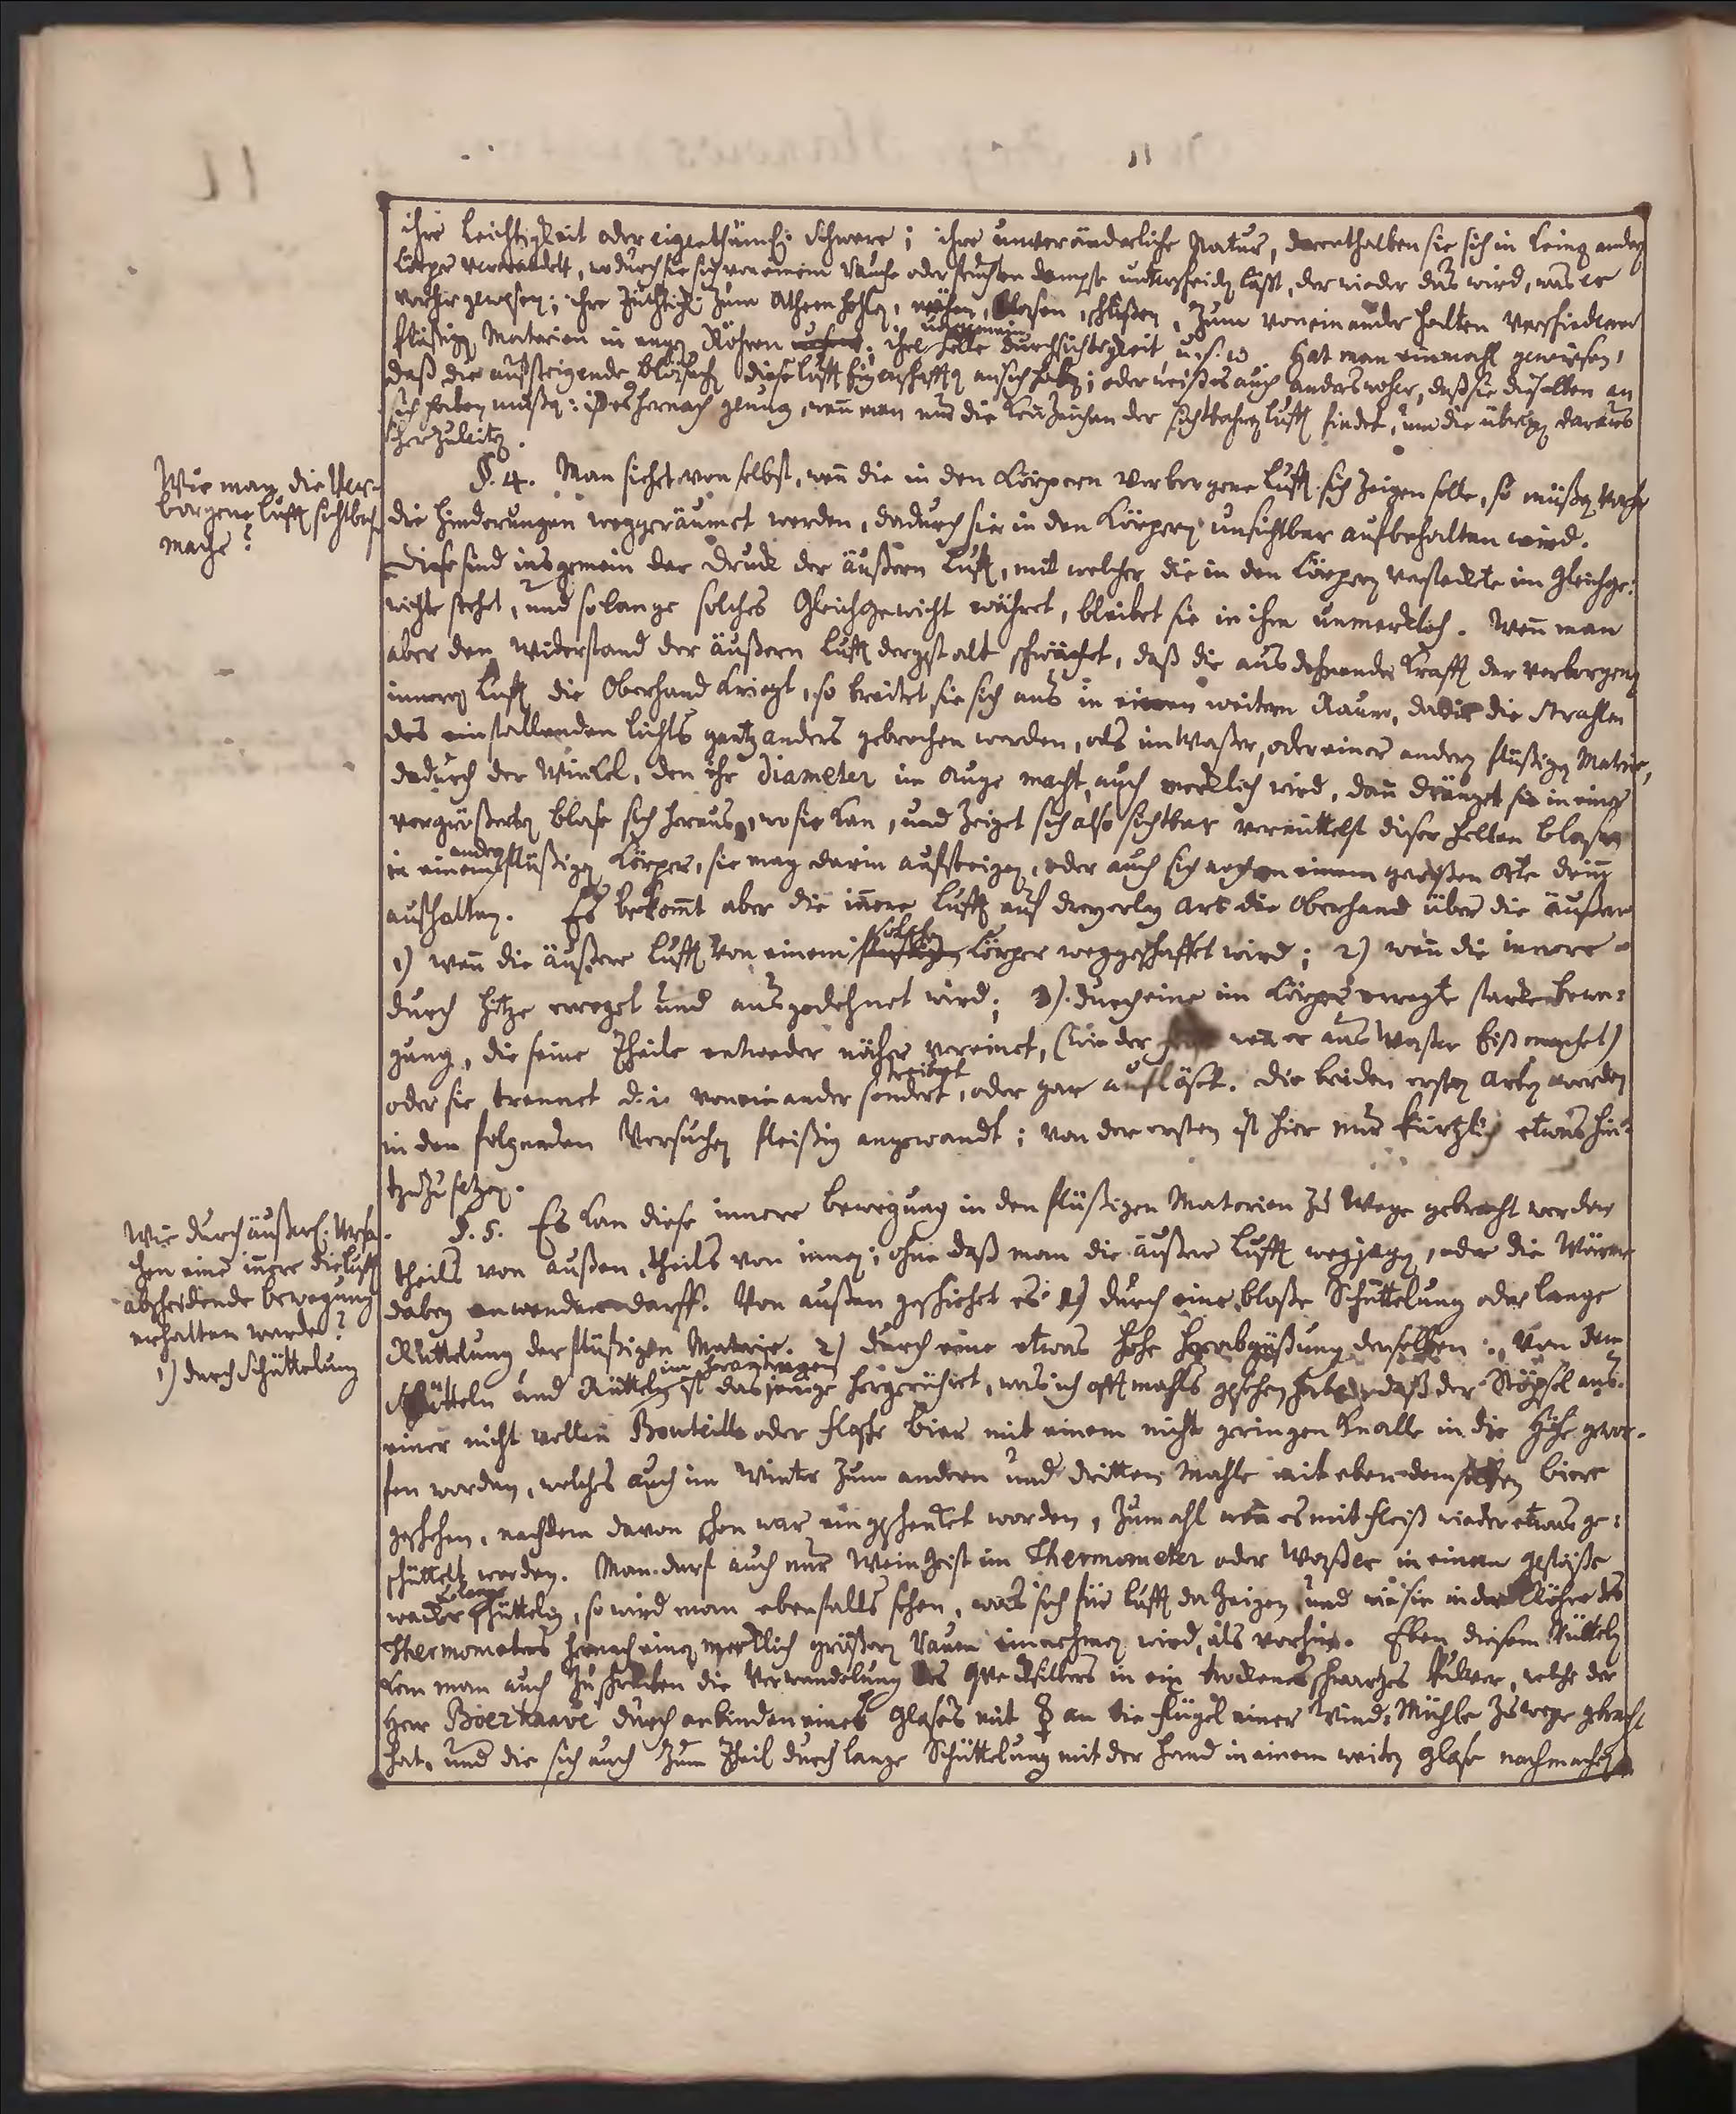 11
ihre Leichtigkeit oder eigenthüml: Schwere; ihre unveränderliche Natur, derenthalben sie sich in keinen andern
Körper verwandelt, wodurch sie sich von einem Rauche oder feuchten Dampfe unterscheiden läßt, der wieder das wird, was er
vorher gewesen; ihre Tüchtigk: zum Athem hohlen, wehen, blasen, schießen, zum voneinander halten verschiedener
flüßigen Materien in engen Röhren; ihre helle ungemein Durchsichtigkeit u. s. w. Hat man einmahl gewiesen,
daß die aufsteigende Bläsgen diese Lufft Eigenschafften an sich haben; oder weiß es auch anderswoher, daß sie dieselben an
sich haben müßen: ist es hernach genung, wenn man nur die Kennzeichen der sichtbahren Lufft findet, um die übrigen daraus
herzuleiten.
Wie man die Ver-
borgene Lufft sichtbahr
mache?
§. 4. Man siehet von selbst, wenn die in den Körpern verborgene Lufft sich zeigen solle, so müßen vorher
die Hinderungen weggeräumet werden, dadurch sie in den Körpern unsichtbar aufbehalten wird.
Diese sind insgemein der Druck der äußern Lufft, mit welcher die in den Körpern versteckte im Gleichge-
wichte stehet, und solange solches Gleichgewicht währet, bleibet sie in ihm unmercklich. Wenn man
aber den Widerstand der äußern Lufft dergestalt schwächet, daß die ausdehnende Krafft der verborgenen
innern Lufft die Oberhand kriegt, so breitet sie sich aus in einen weitern Raum, dadie die Strahlen
des einfallenden Lichts gantz anders gebrochen werden, als im Waßer, oder einer andern flüßigen Materie,
dadurch der Winkel, den ihr Diameter im Auge macht, auch mercklich wird, dann dränget sie in einer
vergrößerten Blase sich heraus, wo sie kan, und zeiget sich also sichtbar vermittelst dieser hellen Blasen
in einem andern flüßigen Körper, sie mag darin aufsteigen, oder auch sich noch an einem gewißen Orte drinn
aufhalten. Es bekomt aber die innere Lufft auf dreyerley Art die Oberhand über die äußere
1) wenn die äußere Lufft von einem solchen Körper weggeschaffet wird; 2) wenn die innere
durch Hitze erreget und ausgedehnet wird; 3). durch eine im Körper erregte starcke Bewe-
gung, die seine Theile entweder näher vereinet, (wie der wenn er aus Waßer Eiß machet)
oder sie trennet d. i. voneinander sondert, treibet oder gar auflöset. Die beiden ersten Arten werden
in den folgenden Versuchen fleißig angewandt; von der ersten ist hier nur kürtzlich etwas hin-
zuzusetzen.
Wie durch äußerl: Ursa-
chen eine innere die Lufft
abscheidende Bewegung
erhalten werde?
1) durch Schüttelung
§. 5. Es kan diese innere Bewegung in den flüßigen Materien zu Wege gebracht werden
theils von außen, theils von innen; ohne daß man die äußere Lufft wegjagen, oder die Wärme
dabey anwenden darff. Von außen geschiehet es: 1) durch eine bloße Schüttelung oder lange
Rüttelung der flüßigen Materie. 2) durch eine etwas hohe Herabgüßung derselben: Von dem
Schütteln und Rütteln im herantragen ist dasjenige hergerühret, was ich offtmahls gesehen habe, daß der Stöpsel aus
einer nicht vollen Bouteille oder Flasche Bier mit einem nicht geringen Knalle in die Höhe gewor-
fen worden, welches auch im Winter zum andern und dritten Mahle mit eben demselben Biere
geschehen, nachdem davon schon war eingeschencket worden, zumahl wenn es mit Fleiß wieder etwas ge-
schüttelt worden. Man darf auch nur Weingeist im Thermometer oder Waßer in einem Gefäße
wacker lange schütteln, so wird man ebenfalls sehen, was sich für Lufft da zeigen, und wie sie in der Röhre des
Thermometers hernach einen mercklich größern Raum einnehmen wird, als vorhin. Eben diesem Rütteln
kan man auch zuschreiben die Verwandelung des Quecksilbers in ein trockenes schwartzes Pulver, welche der
Herr Boerhaave durch anbinden eines Glases mit ☿ an die Flügel einer Wind-Mühle zu wege gebracht
hat, und die sich auch zum Theil durch lange Schüttelung mit der Hand in einem weiten Glase nachmachen